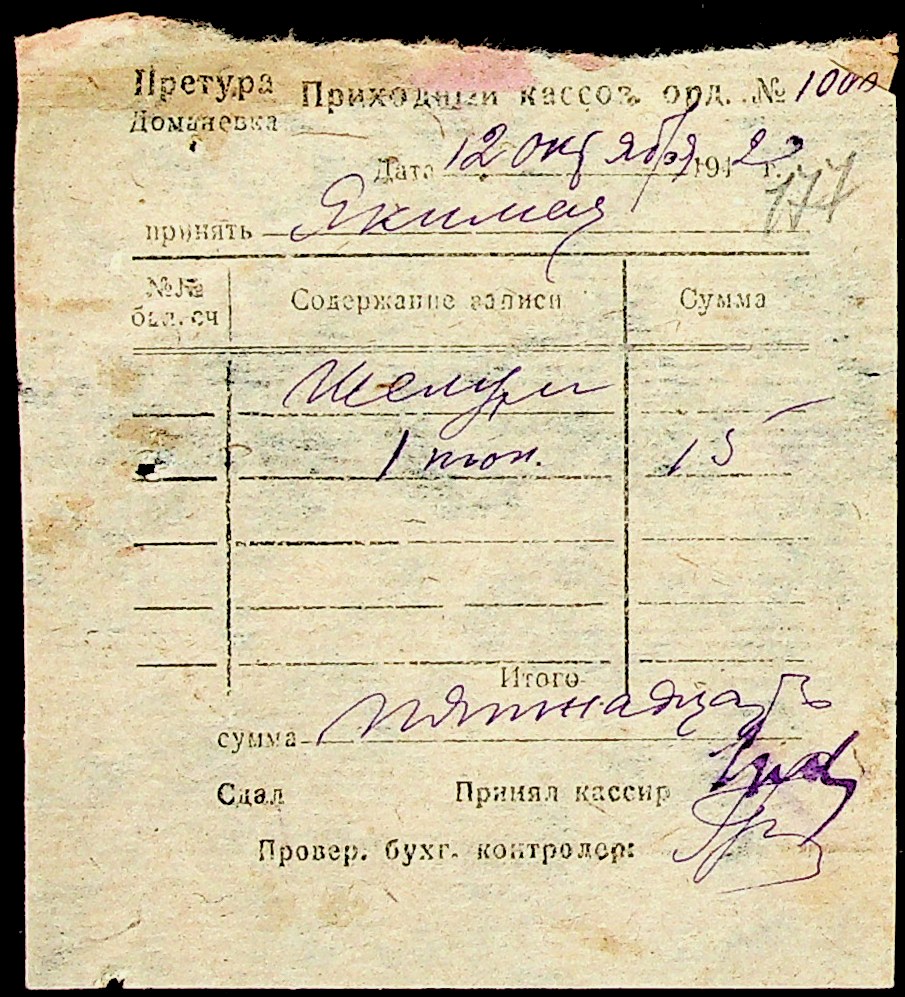 Претура Приходный кассов. орд. № 1000
Доманевка
Дата 12 октября 194 2 г.
177
принять
№№ Содержание записи Сумма
бал. сч
1 тон. 15
Итого
сумма пятнадцать
Сдал Принял кассир
Провер. бухг. контролер: